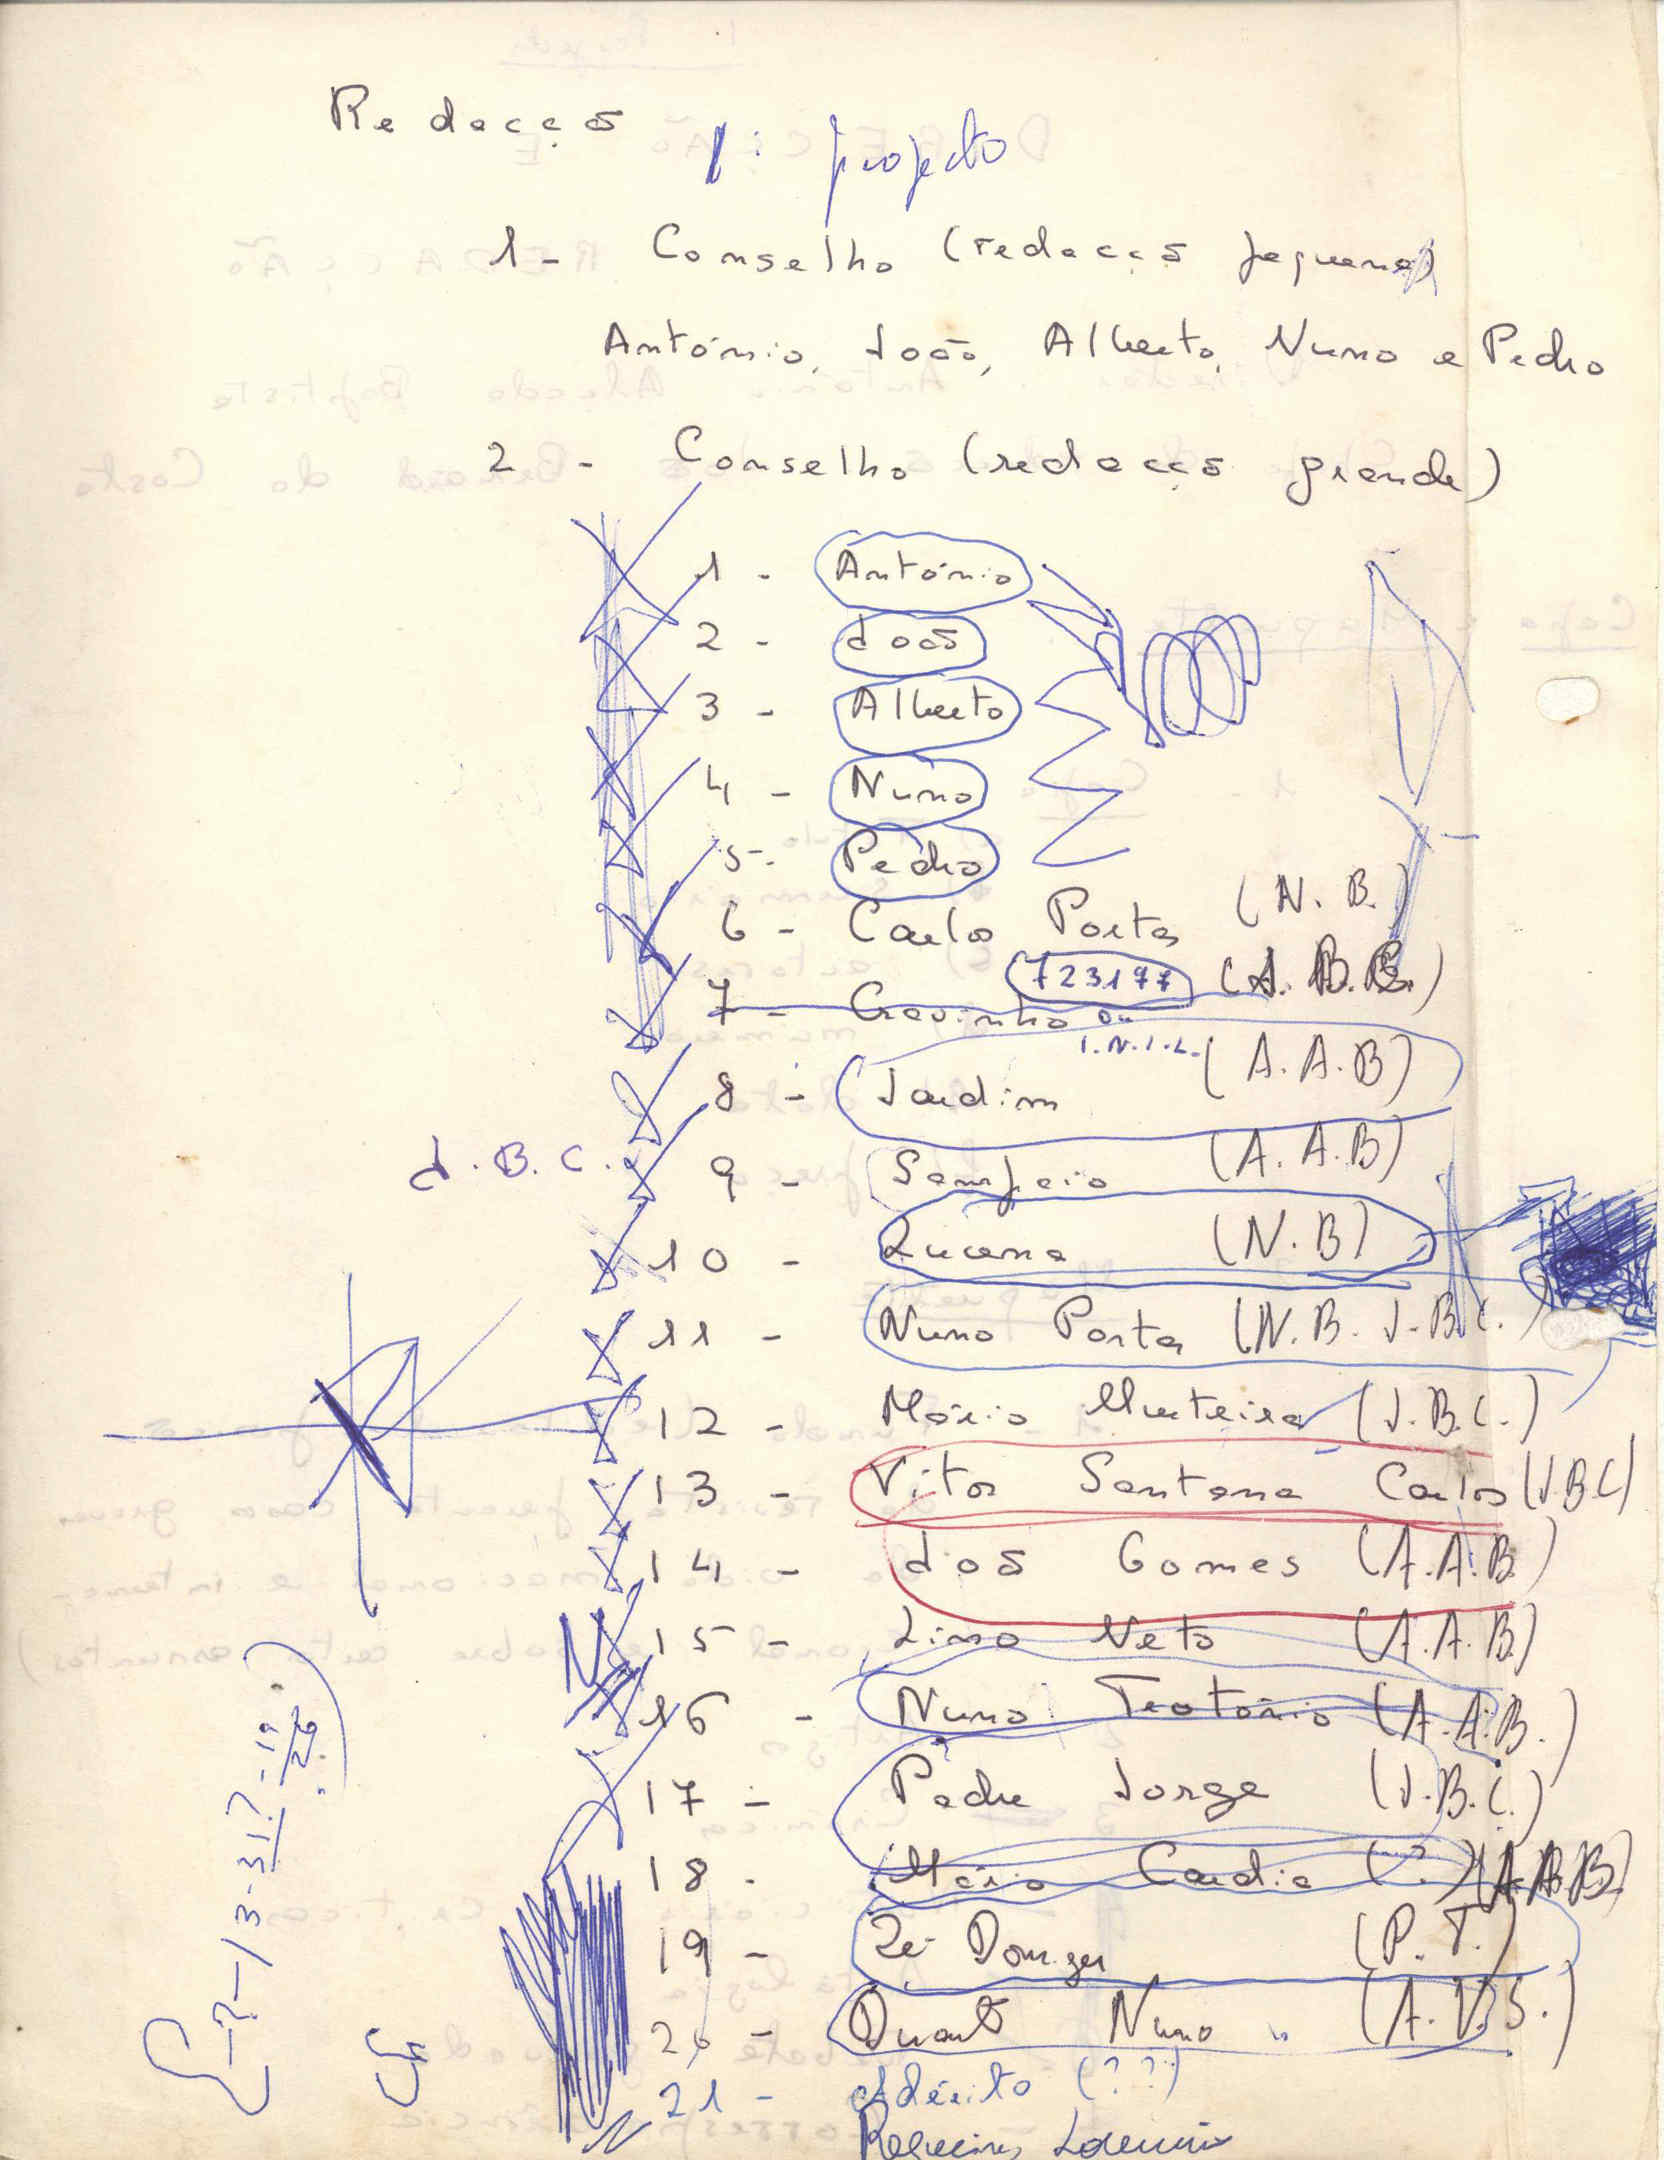 Redacção 1: projecto
1 - Conselho (redacção pequena)
António, João, Alberto, Nuno e Pedro
2 - Conselho (redacção grande)
1 - António
2 - João
3 - Alberto
4 - Nuno
5 - Pedro
6 - Carlos Portas (N. B.)
7 - Cravinho 723177 (A. B. C.)
ou I.N.I.L.
8 - Jardim (A.A.B)
J.B.C. 9 - Sampaio (A.A.B)
10 - Lucena (N.B)
11 - Nuno Portas (N.B. J.B.C.)
12 - Mário Murteira (J.B.C.)
13 - Vitor Santana Carlos (J.B.C)
14 - João Gomes (A.A.B)
15 - Lino Neto (A.A.B)
16 - Nuno Teotónio (A.A.B.)
17 - Padre Jorge (J.B.C.)
18 - Mário Cardia (?) (A.A.B)
19 - Zé Domingos (P.T.)
20 - Duarte Nuno (A.V.S.)
21 - Adérito (??)